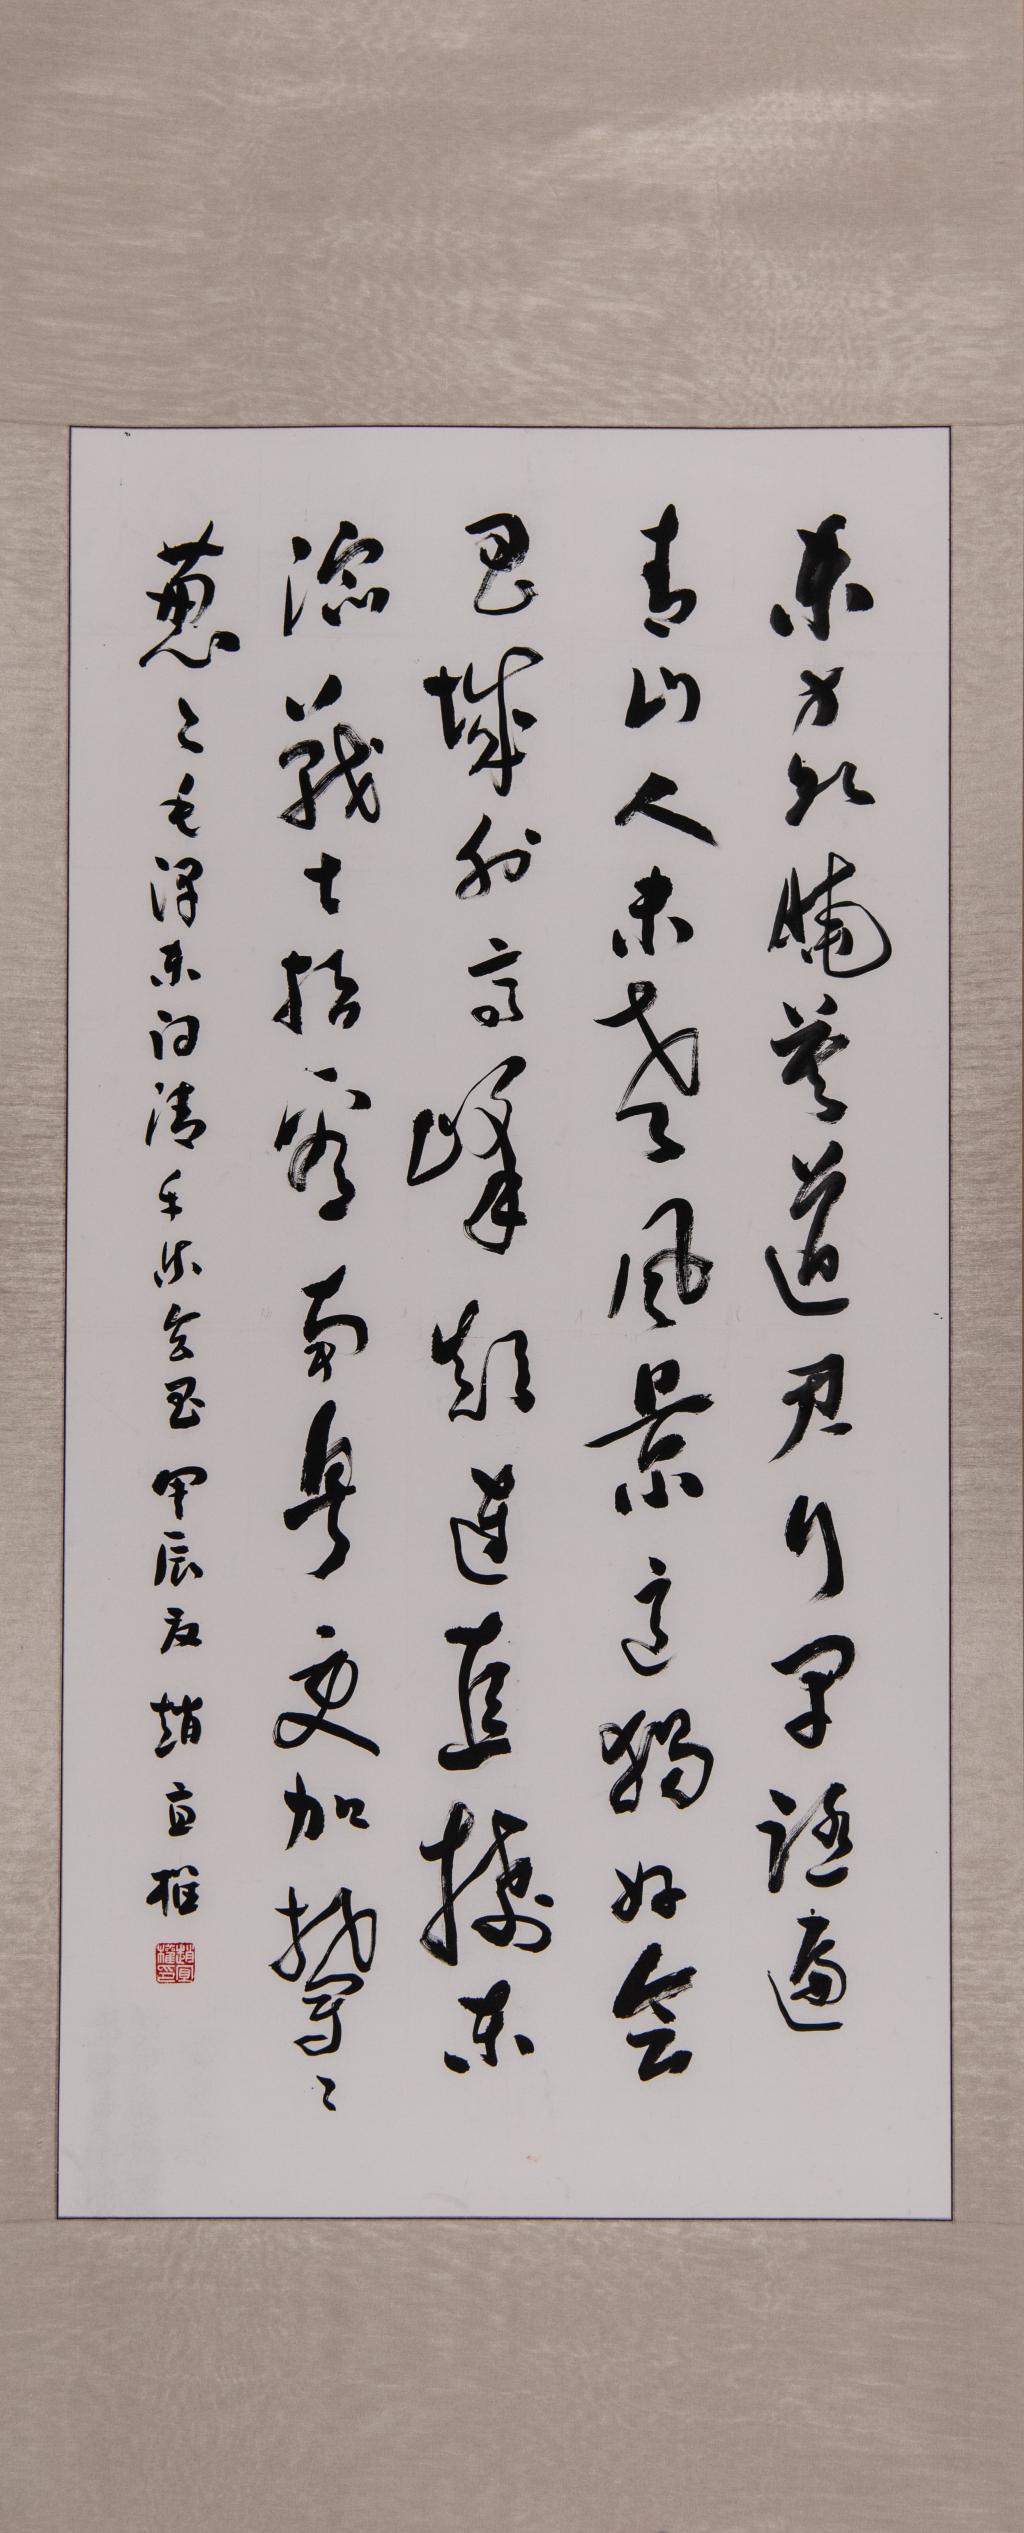 东方欲晓莫道君行早踏遍
青山人未老风景这边独好会
昌城外高峰颠连直接东
溟战士指看南粤更加郁〻
葱〻毛泽东词清平乐会昌 甲辰夏 趙 权